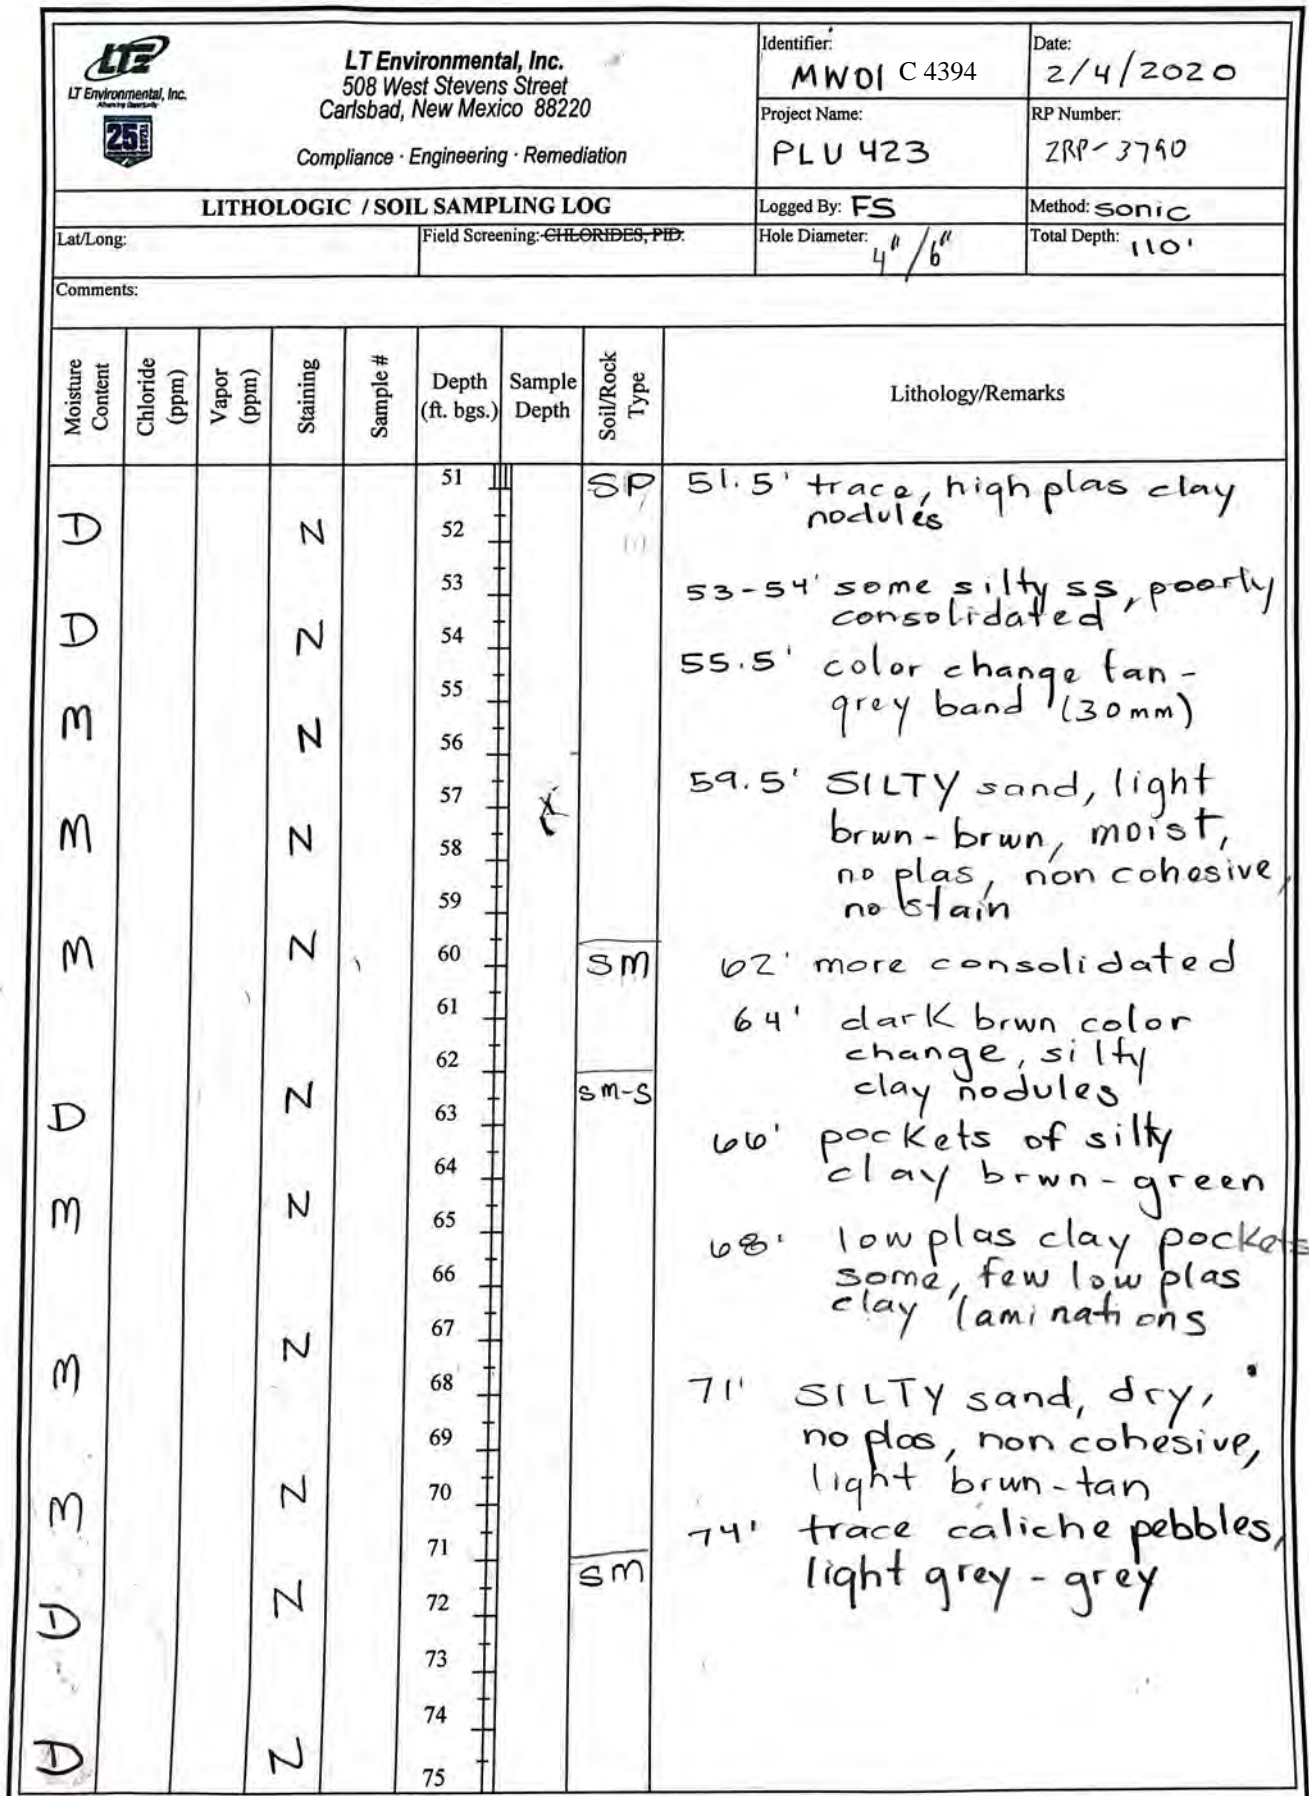 LTE
LT Environmental, Inc.
Advancing Opportunity
25
LT Environmental, Inc.
508 West Stevens Street
Carlsbad, New Mexico 88220
Compliance · Engineering · Remediation
Identifier:
MW01 C 4394
Date:
2/4/2020
Project Name:
PLU 423
RP Number:
2RP-3790
LITHOLOGIC / SOIL SAMPLING LOG
Logged By: FS
Method: sonic
Lat/Long:
Field Screening: CHLORIDES, PID.
Hole Diameter: 4"/6"
Total Depth: 110'
Comments:
Moisture Content
Chloride (ppm)
Vapor (ppm)
Staining
Sample #
Depth (ft. bgs.)
Sample Depth
Soil/Rock Type
Lithology/Remarks
51 SP 51.5' trace, high plas clay
nodules
D N 52
53 53-54' some silty ss, poorly
consolidated
D N 54
55 55.5' color change tan-
grey band (30mm)
M N 56
57 59.5' SILTY sand, light
brwn-brwn, moist,
M N 58
no plas, non cohesive,
59 no stain
M N 60 SM 62' more consolidated
61 64' dark brwn color
change, silty
62 clay nodules
D N 63 SM-S 66' pockets of silty
64 clay brwn-green
M N 65 68' low plas clay pockets
66 some, few low plas
clay laminations
67
M N 68 71' SILTY sand, dry,
69 no plas, non cohesive,
M N 70 light brwn-tan
71 74' trace caliche pebbles,
SM light grey - grey
D N 72
73
74
D N 75